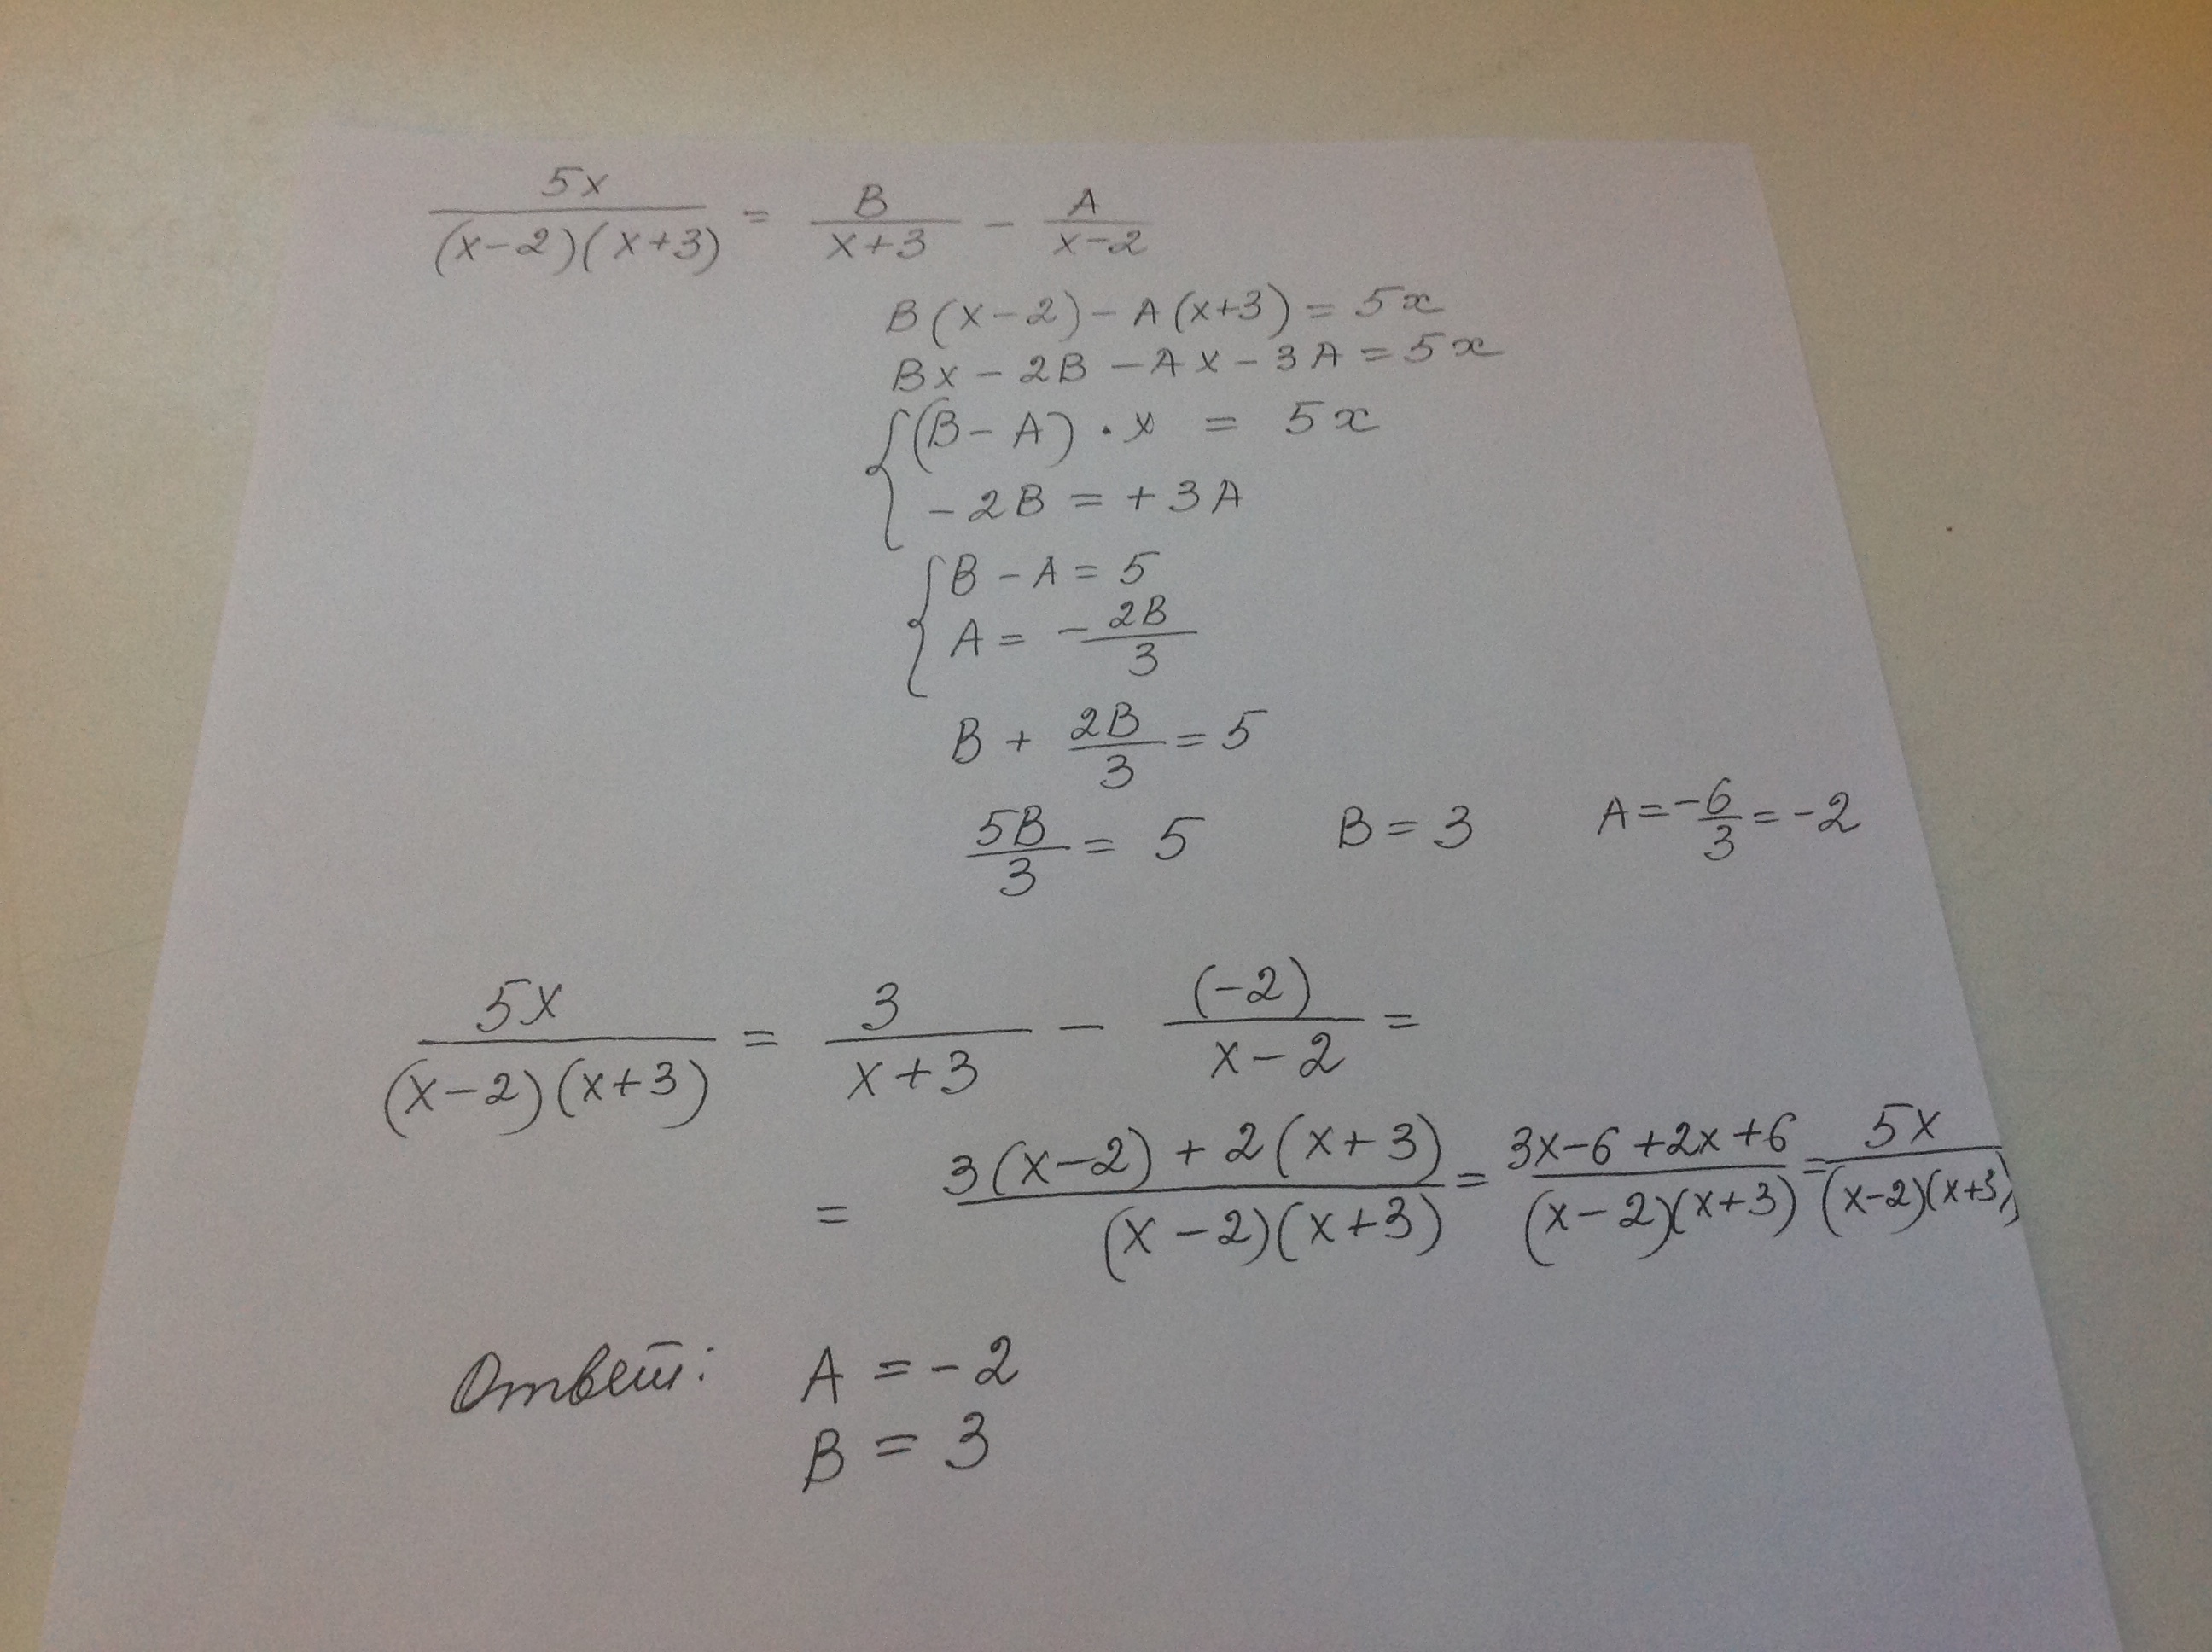 5x/((x-2)(x+3)) = B/(x+3) - A/(x-2)
B(x-2) - A(x+3) = 5x
Bx - 2B - Ax - 3A = 5x
{(B-A)·x = 5x
-2B = +3A
{B - A = 5
A = -2B/3
B + 2B/3 = 5
5B/3 = 5 B = 3 A = -6/3 = -2
5x/((x-2)(x+3)) = 3/(x+3) - (-2)/(x-2) =
= (3(x-2)+2(x+3))/((x-2)(x+3)) = (3x-6+2x+6)/((x-2)(x+3)) = 5x/((x-2)(x+3))
Ответ: A = -2
B = 3